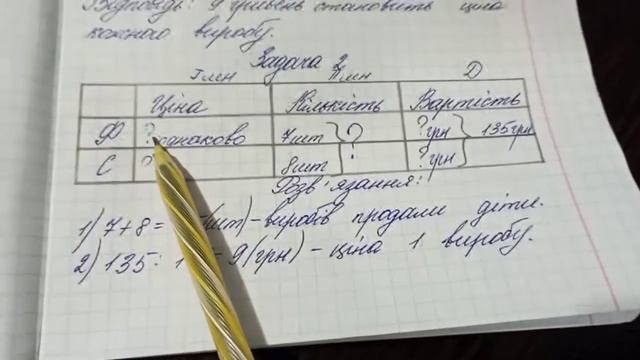 Відповідь: 9 гривень становить ціна
кожного виробу.
Задача 2
I мн II мн D
Ціна Кількість Вартість
Ф ? однаково 7 шт ? ? грн 135 грн
С ? 8 шт ? грн
Розв'язання:
1) 7 + 8 = (шт) – виробів продали діти.
2) 135 : 1 = 9 (грн) – ціна 1 виробу.